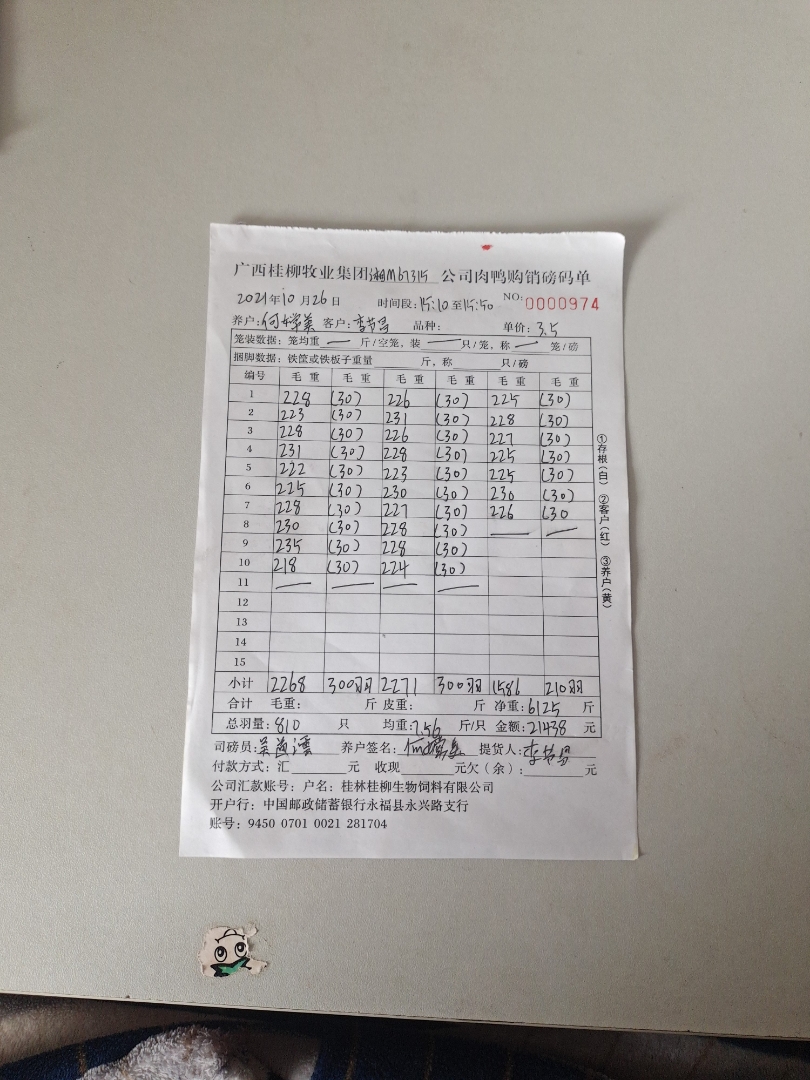 广西桂柳牧业集团湘M67315公司肉鸭购销磅码单
2021年10月26日 时间段:15:10至15:50 NO:0000974
养户: 客户:李节号 品种: 单价:3.5
笼装数据:笼均重 — 斤/空笼,装 — 只/笼,称 — 笼/磅
捆脚数据:铁筐或铁板子重量 斤,称 只/磅
编号 毛重 毛重 毛重 毛重 毛重 毛重
1 228 (30) 226 (30) 225 (30)
2 223 (30) 231 (30) 228 (30)
3 228 (30) 226 (30) 227 (30)
4 231 (30) 228 (30) 225 (30)
5 222 (30) 223 (30) 225 (30)
6 225 (30) 230 (30) 230 (30)
7 228 (30) 227 (30) 226 (30
8 230 (30) 228 (30) — —
9 235 (30) 228 (30)
10 218 (30) 224 (30)
11 — — — —
12
13
14
15
小计 2268 300羽 2271 300羽 1586 210羽
合计 毛重: 斤 皮重: 斤 净重:6125 斤
总羽量:810 只 均重:7.56 斤/只 金额:21438 元
司磅员: 养户签名: 提货人:
付款方式:汇 元 收现 元欠(余): 元
公司汇款账号:户名:桂林桂柳生物饲料有限公司
开户行:中国邮政储蓄银行永福县永兴路支行
账号:9450 0701 0021 281704
①存根(白) ②客户(红) ③养户(黄)